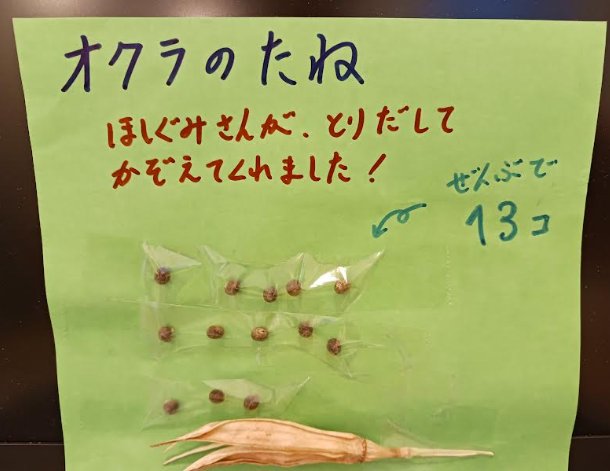 オクラのたね
ほしぐみさんが、とりだして
かぞえてくれました！
ぜんぶで
13コ